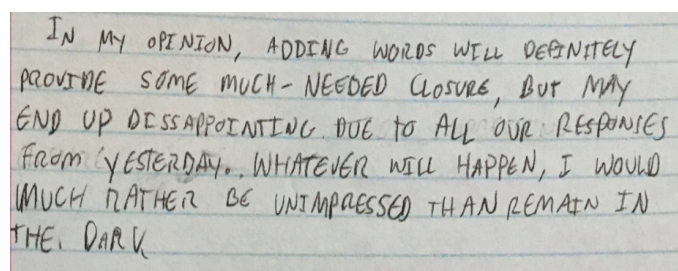 IN MY OPINION, ADDING WORDS WILL DEFINITELY
PROVIDE SOME MUCH-NEEDED CLOSURE, BUT MAY
END UP DISSAPPOINTING DUE TO ALL OUR RESPONSES
FROM YESTERDAY. WHATEVER WILL HAPPEN, I WOULD
MUCH RATHER BE UNIMPRESSED THAN REMAIN IN
THE. DARK